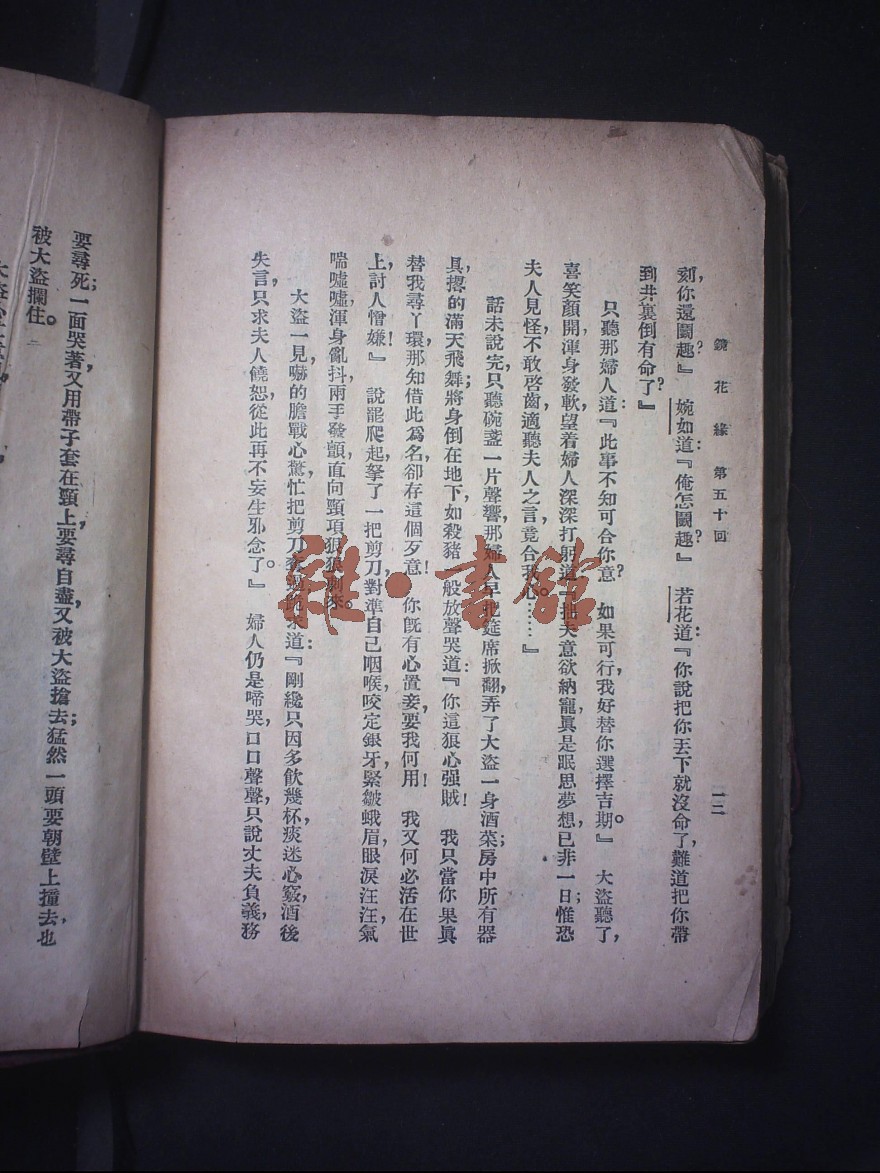 鏡花緣 第五十回 一二
刻，你還鬭趣？』 婉如道：『俺怎鬭趣？』 若花道：『你說把你丟下就沒命了，難道把你帶
到井裏倒有命了？』
只聽那婦人道：『此事不知可合你意？ 如果可行，我好替你選擇吉期。』 大盜聽了，
喜笑顏開，渾身發軟，望着婦人深深打躬道：『拙夫意欲納寵，眞是眠思夢想，已非一日；惟恐
夫人見怪，不敢啓齒，適聽夫人之言，竟合我心……』
話未說完，只聽碗盞一片聲響，那婦人早把筵席掀翻，弄了大盜一身酒菜；房中所有器
具，撂的滿天飛舞；將身倒在地下，如殺豬一般放聲哭道：『你這狠心强賊！ 我只當你果眞
替我尋丫環，那知借此爲名，卻存這個歹意！ 你旣有心置妾，要我何用！ 我又何必活在世
上，討人憎嫌！』 說罷，爬起，拏了一把剪刀，對準自己咽喉，咬定銀牙，緊皺蛾眉，眼淚汪汪，氣
喘噓噓，渾身亂抖，兩手發顫，直向頸項狠狠刺來。
大盜一見，嚇的膽戰心驚，忙把剪刀奪過，跪求道：『剛纔只因多飮幾杯，痰迷心竅，酒後
失言，只求夫人饒恕，從此再不妄生邪念了。』 婦人仍是啼哭，口口聲聲，只說丈夫負義，務
要尋死；一面哭著，又用帶子套在頸上，要尋自盡，又被大盜搶去；猛然一頭要朝壁上撞去，也
被大盜攔住。
雜·書館